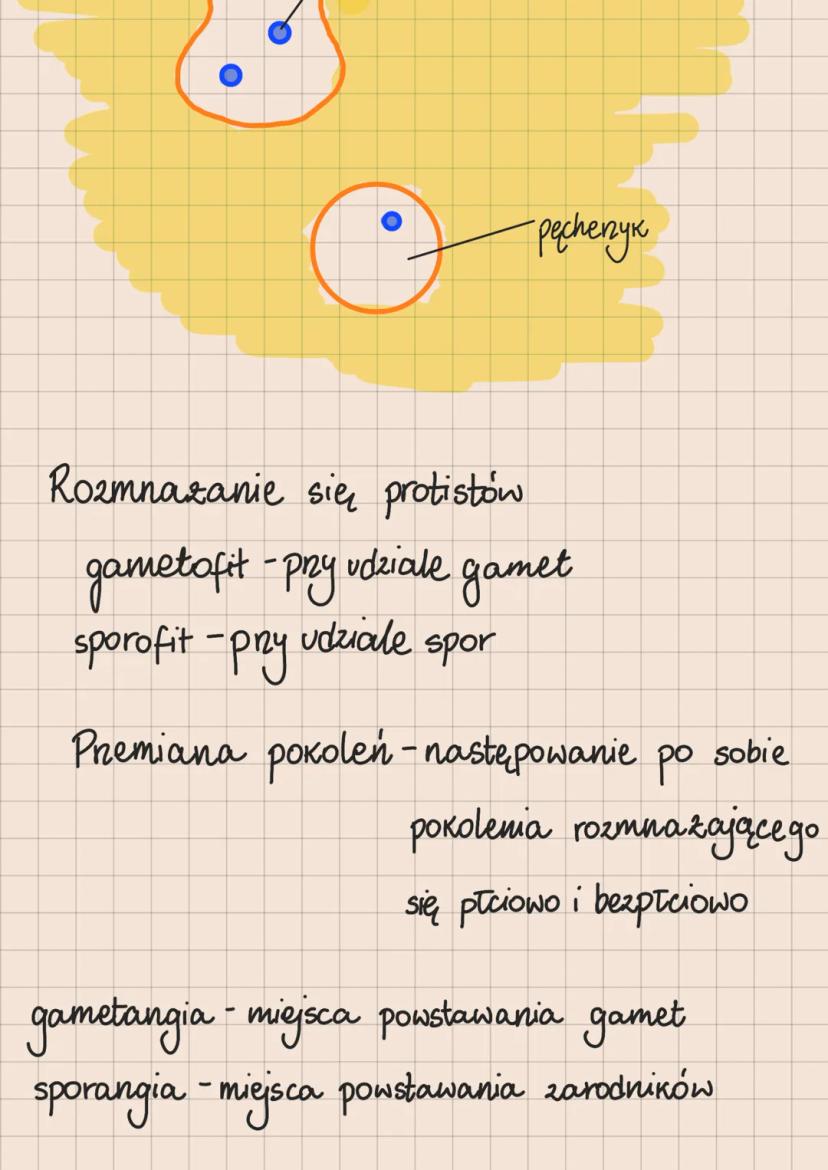 pęcherzyk
Rozmnażanie się protistów
gametofit - przy udziale gamet
sporofit - przy udziale spor
Przemiana pokoleń - następowanie po sobie
pokolenia rozmnażającego
się płciowo i bezpłciowo
gametangia - miejsca powstawania gamet
sporangia - miejsca powstawania zarodników